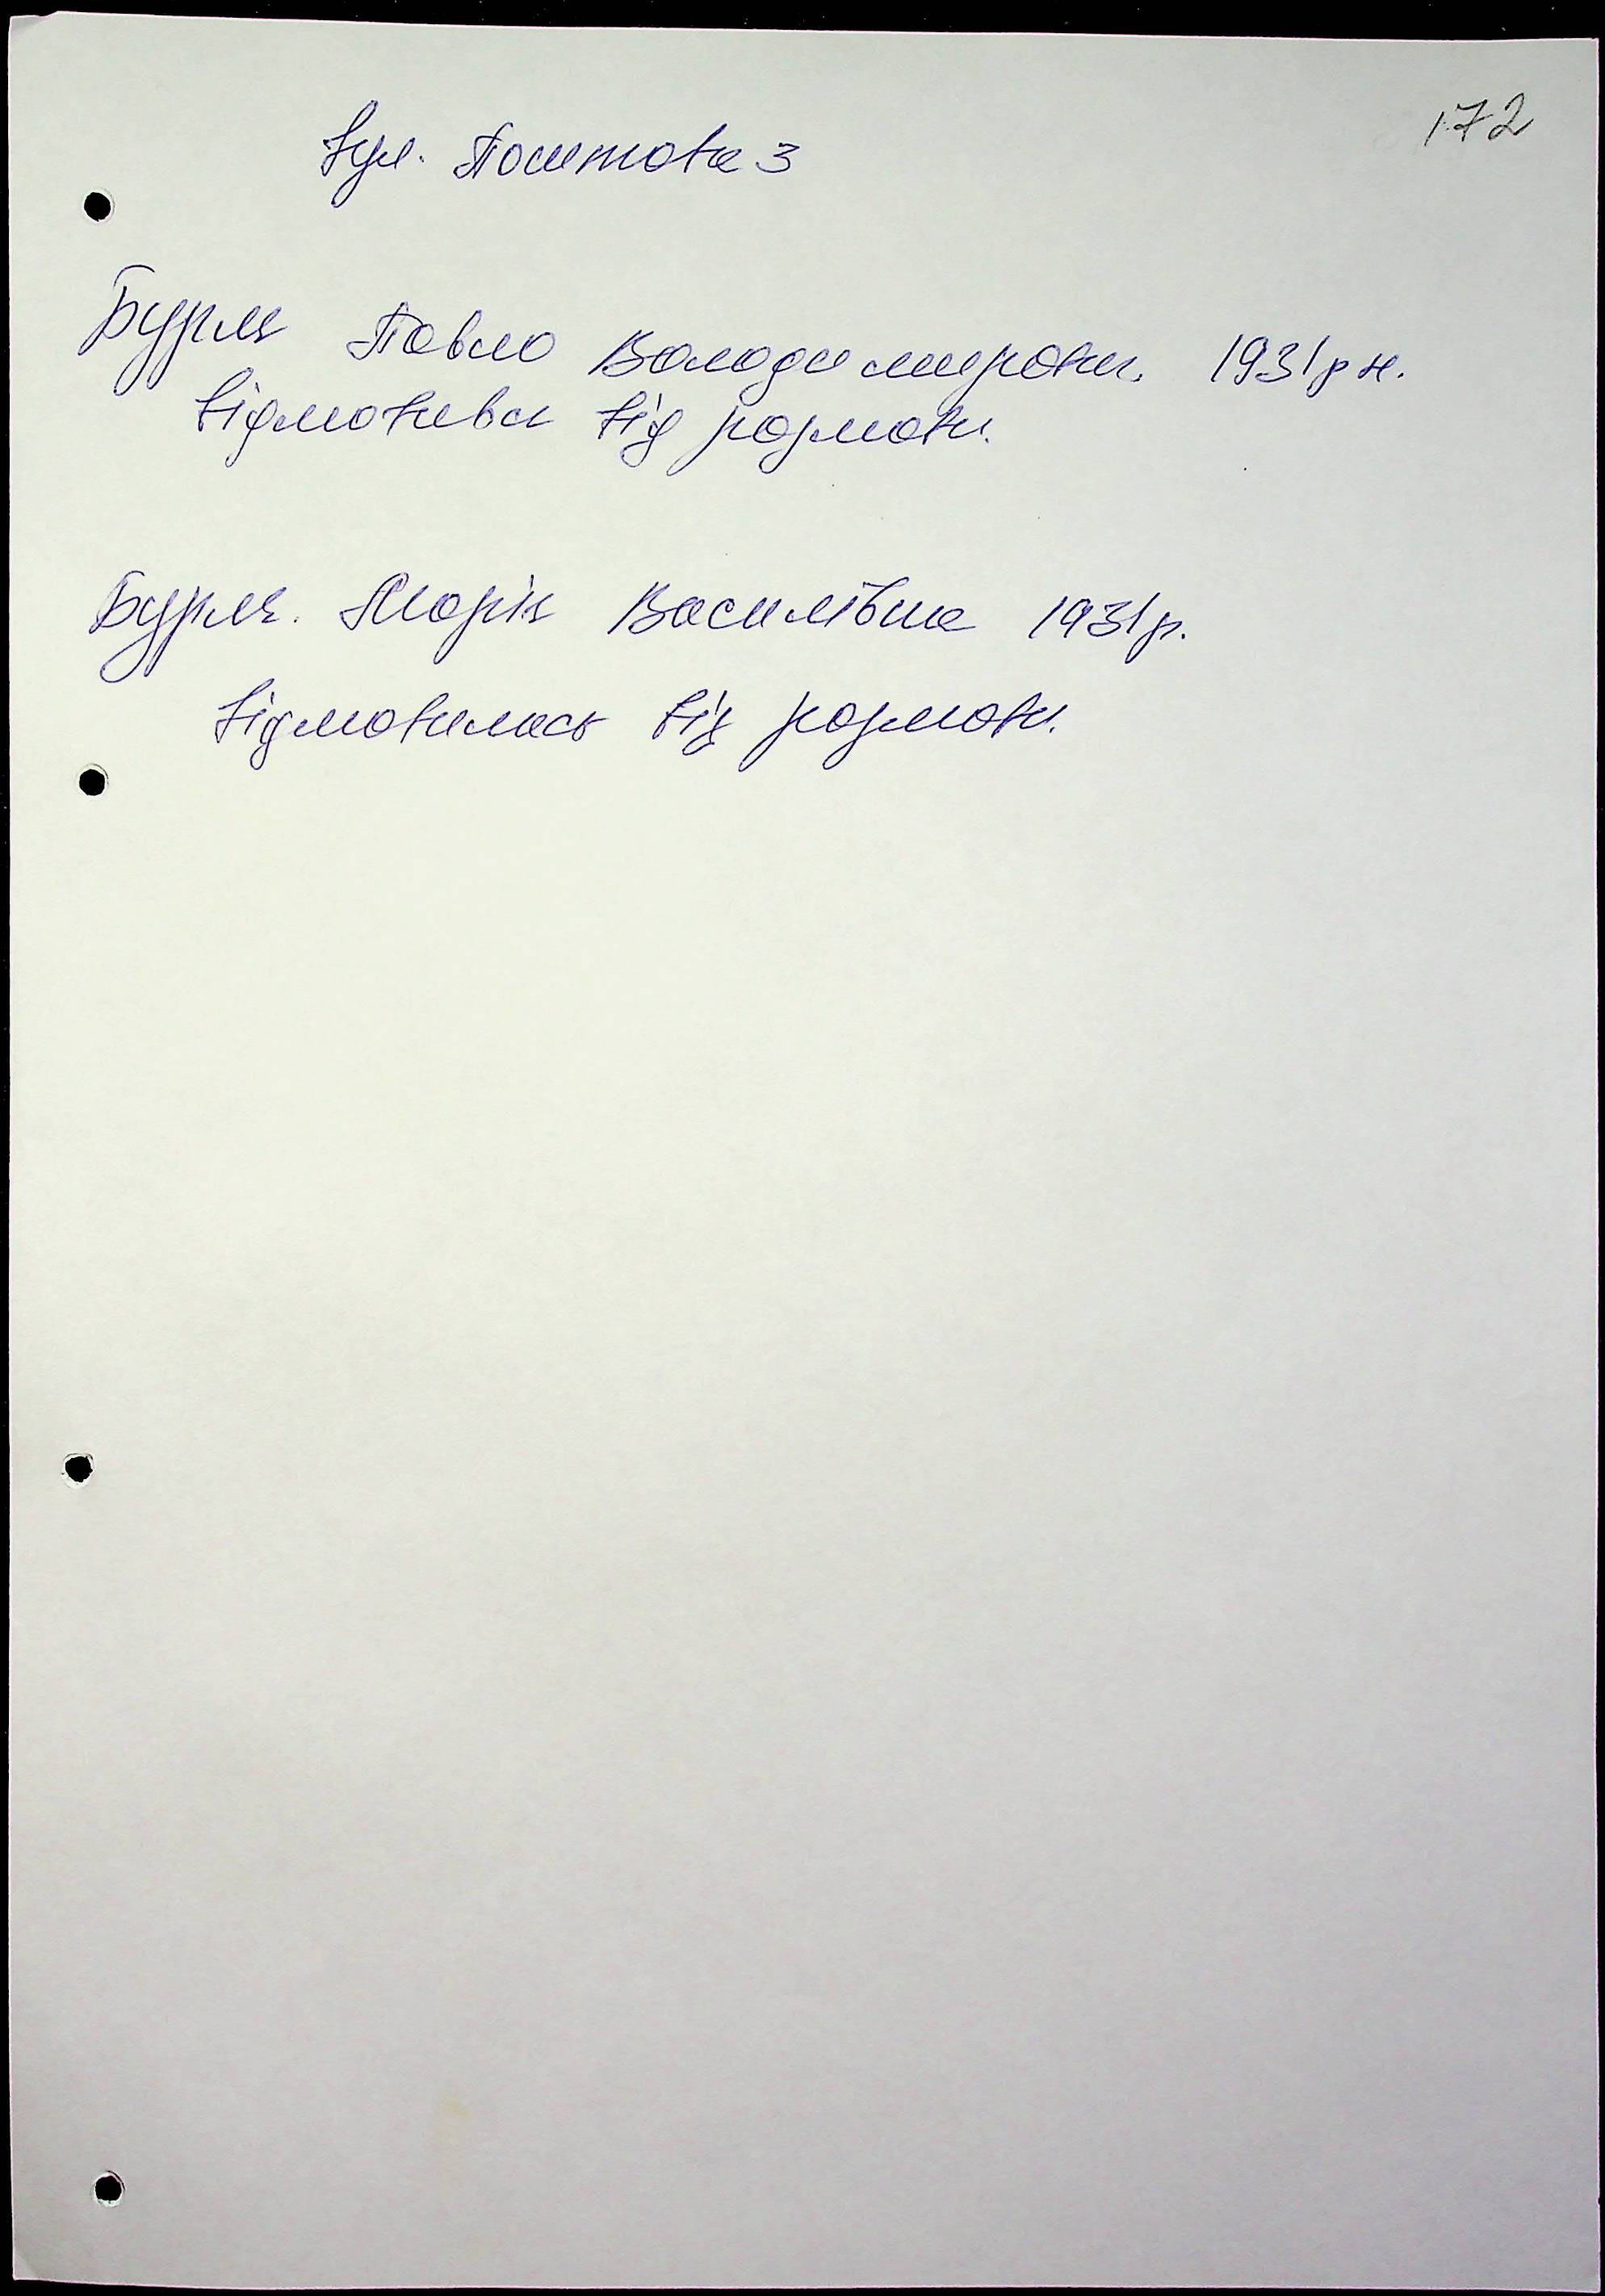 172
вул. Поштова 3
Бурля Павло Володимирович. 1931 р н.
відмовився від розмови.
Бурля. Марія Василівна 1931р.
відмовилась від розмови.